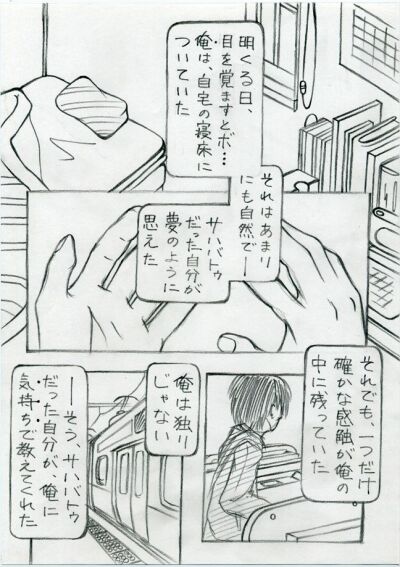 明くる日、
目を覚ますとボ…
俺は、自宅の寝床に
ついていた
それはあまり
にも自然で――
サハバトゥ
だった自分が
夢のように
思えた
それでも、一つだけ
確かな感触が俺の
中に残っていた
俺は独り
じゃない
――そう、サハバトゥ
だった自分が、俺に
気持ちで教えてくれた